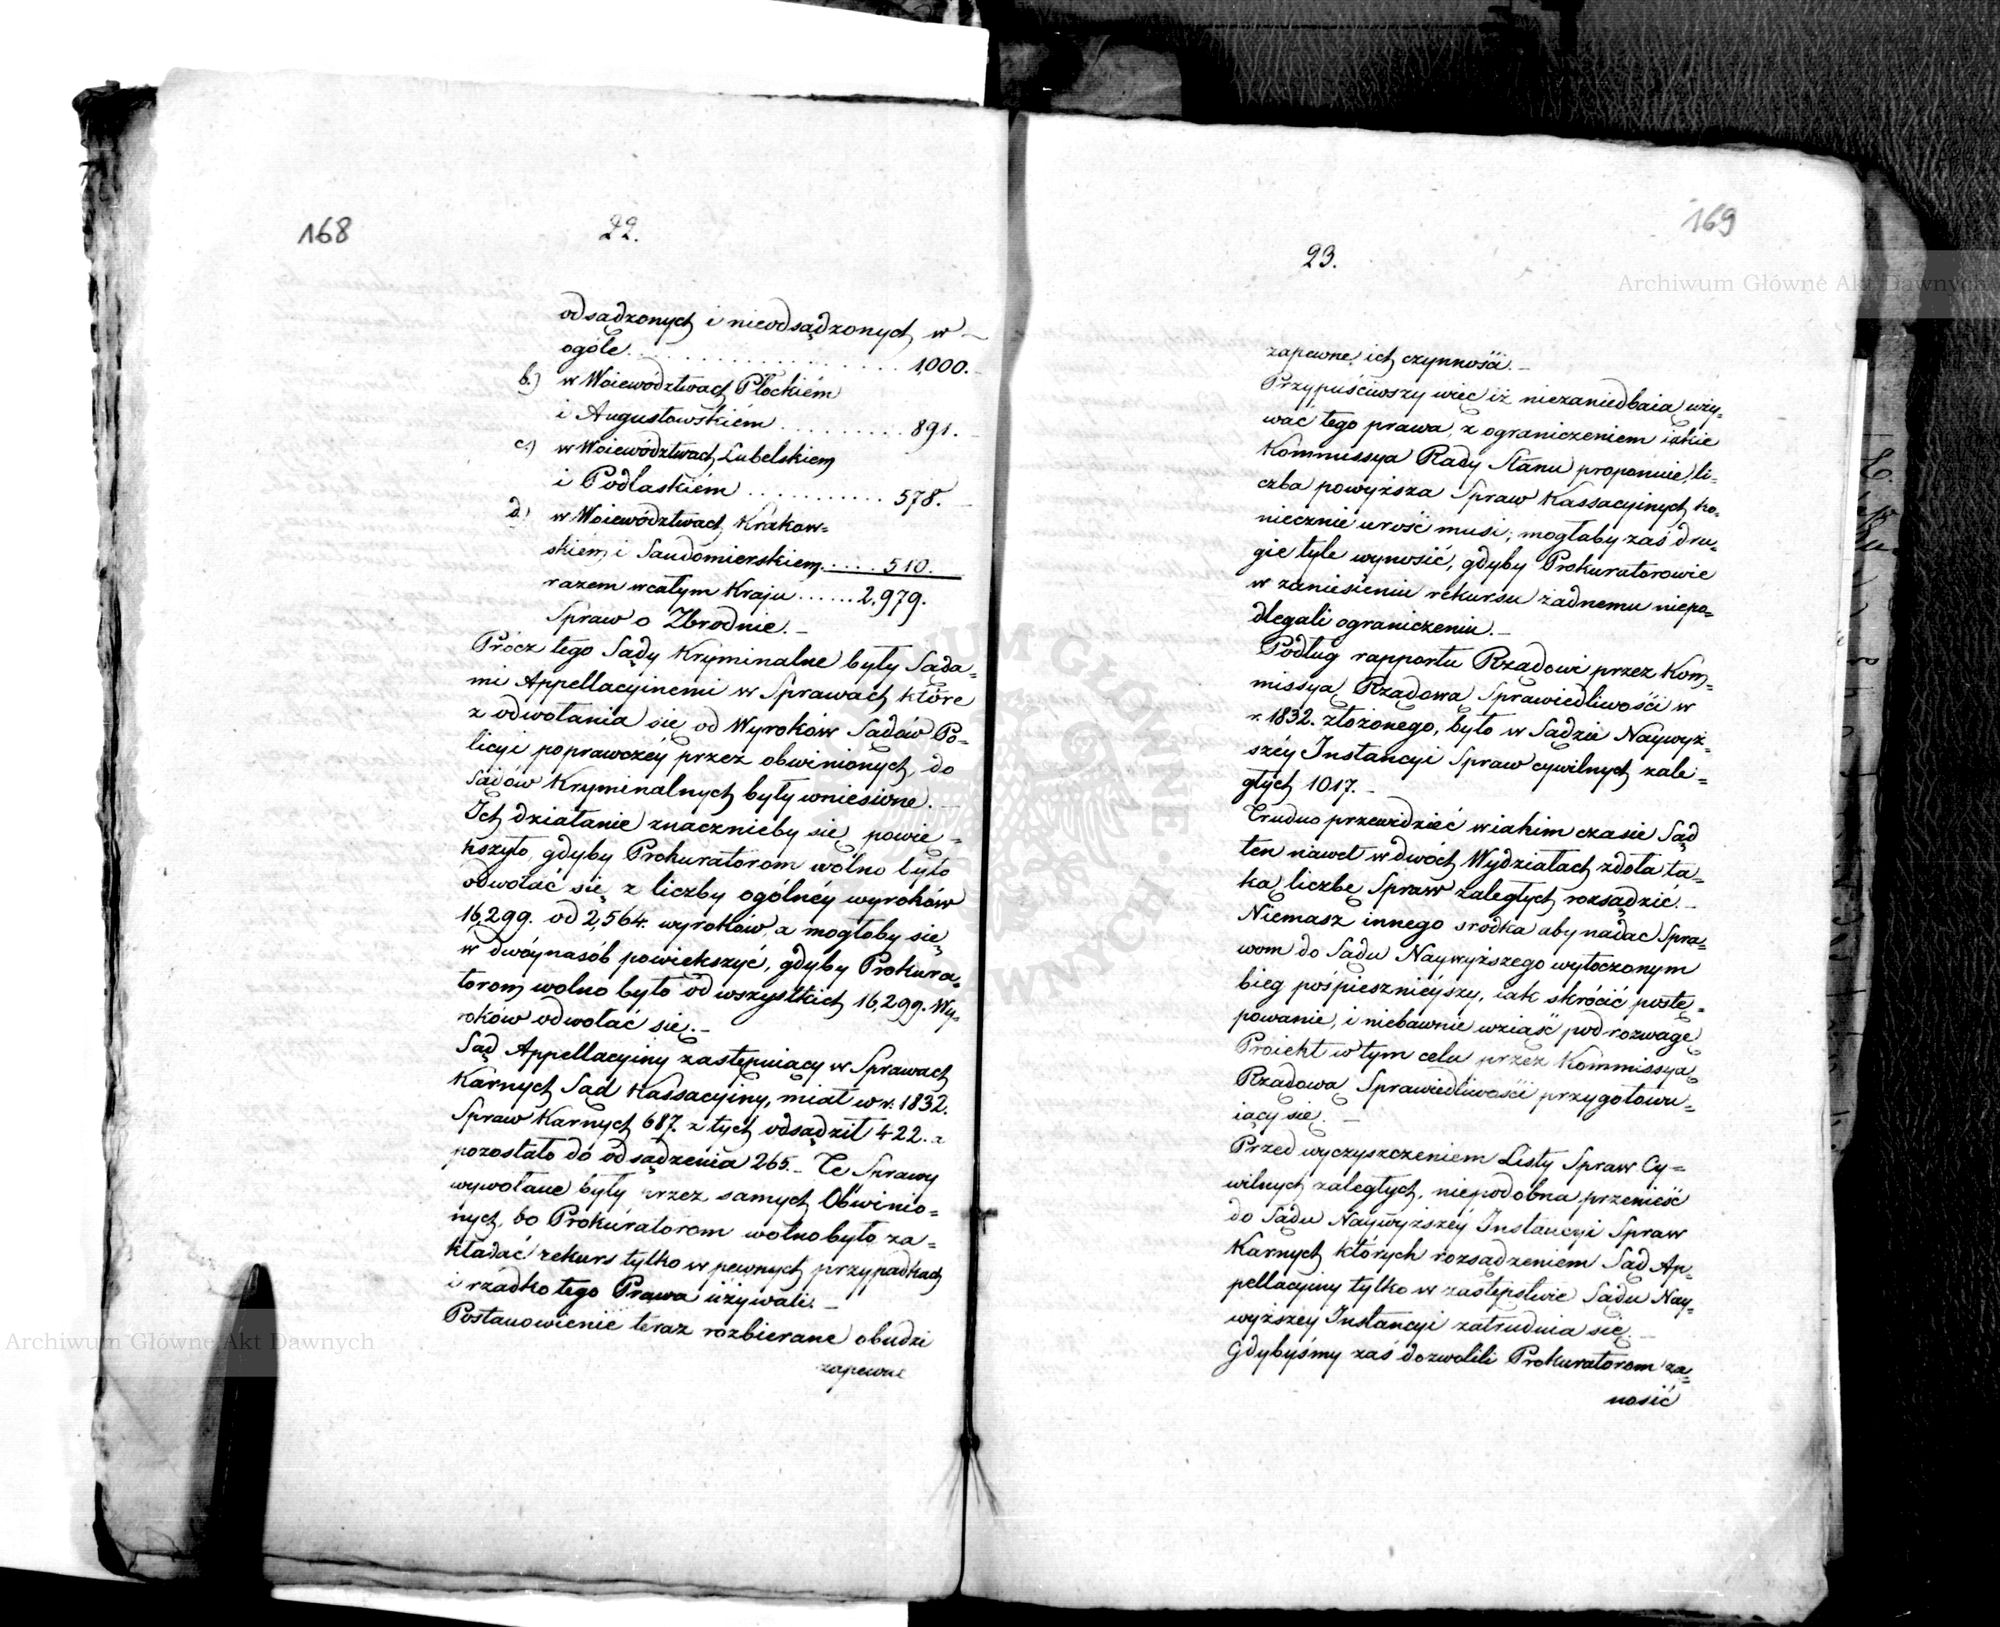 168
22.
odsądzonych i nieodsądzonych w
ogóle . . . . . . . . . . . . . . 1,000.
b.) w Woiewództwach Płockiém
i Augustowskiém . . . . . . . . . 891.
c.) w Woiewództwach Lubelskiem
i Podlaskiém . . . . . . . . . . . 578.
d.) w Woiewództwach Krakow=
skiém i Sandomierskiem . . . . . 510.
razem w całym Kraju . . . . . . 2,979.
Spraw o Zbrodnie.—
Prócz tego Sądy Kryminalne były Sąda=
mi Appellacyinemi w Sprawach które
z odwołania się od Wyroków Sądów Po=
licyi poprawczéy przez obwinionych do
Sądów Kryminalnych były wniesione.—
Ich działanie znacznieby się powię=
kszyło, gdyby Prokuratorom wolno było
odwołać się z liczby ogólnéy wyroków
16,299. od 2,564. wyroków, a mogłoby się
w dwóynasób powiększyć, gdyby Prokura=
torom wolno było od wszystkich 16,299. Wy=
roków odwołać się.—
Sąd Appellacyiny zastępuiący w Sprawach
Karnych Sąd Kassacyiny, miał w r. 1832.
Spraw Karnych 687. z tych odsądził 422. a
pozostało do odsądzenia 265.— Te Sprawy
wywołane były przez samych Obwinio=
nych, bo Prokuratorom wolno było za=
kładać rekurs tylko w pewnych przypadkach
i rzadko tego Prawa używali.—
Postanowienie teraz rozbierane obudzi
zapewne
169
23.
zapewne ich czynność.—
Przypuściwszy więc iż niezaniedbaią uży=
wać tego prawa, z ograniczeniem iakie
Kommissya Rady Stanu proponuie, li=
czba powyższa Spraw Kassacyinych ko=
niecznie urość musi; mogłaby zaś dru=
gie tyle wynosić, gdyby Prokuratorowie
w zaniesieniu rekursu żadnemu niepo=
dlegali ograniczeniu.—
Podług rapportu Rządowi przez Kom=
missyą Rządową Sprawiedliwości w
r. 1832. złożonego, było w Sądzie Naywyż=
széy Instancyi Spraw cywilnych zale=
głych 1017.—
Trudno przewidzieć w iakim czasie Sąd
ten nawet w dwóch Wydziałach zdoła ta=
ką liczbę Spraw zaległych rozsądzić.—
Niemasz innego srodka aby nadać Spra=
wom do Sądu Naywyższego wytoczonym
bieg pośpieszniéyszy, iak skrócić postę=
powanie, i niebawnie wziąść pod rozwagę
Proiekt w tym celu przez Kommissyą
Rządową Sprawiedliwości przygotowu=
iący się.—
Przed wyczyszczeniem Listy Spraw Cy=
wilnych zaległych, niepodobna przenieść
do Sądu Naywyższéy Instancyi Spraw
Karnych których rozsądzeniem Sąd Ap=
pellacyiny tylko w zastępstwie Sądu Nay=
wyższéy Instancyi zatrudnia się.—
Gdybyśmy zaś dozwolili Prokuratorom za=
nosić
Archiwum Główne Akt Dawnych
Archiwum Główne Akt Dawnych